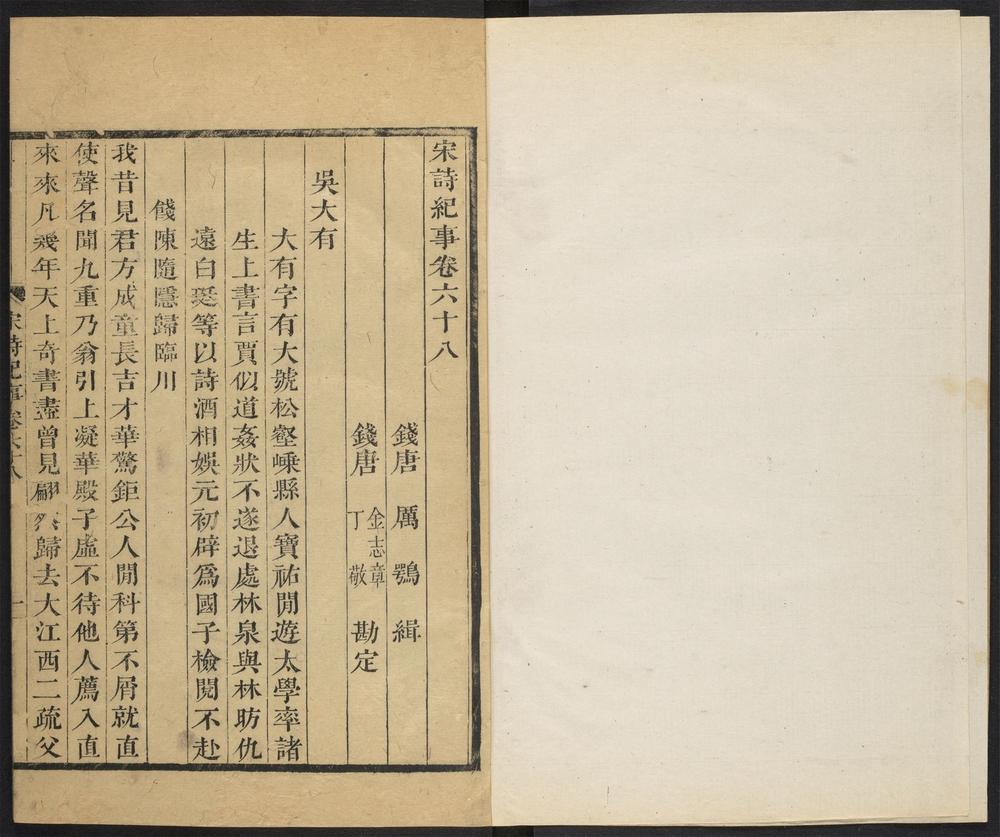 宋詩紀事卷六十八
錢唐 厲鶚 緝
錢唐 金志章 丁敬 勘定
吳大有
大有字有大號松壑嵊縣人寶祐閒遊太學率諸
生上書言賈似道姦狀不遂退處林泉與林昉仇
遠白珽等以詩酒相娛元初辟爲國子檢閱不赴
餞陳隨隱歸臨川
我昔見君方成童長吉才華驚鉅公人閒科第不屑就直
使聲名聞九重乃翁引上凝華殿子虛不待他人薦入直
來來凡幾年天上奇書盡曾見翩然歸去大江西二疏父
宋詩紀事卷六十八 一